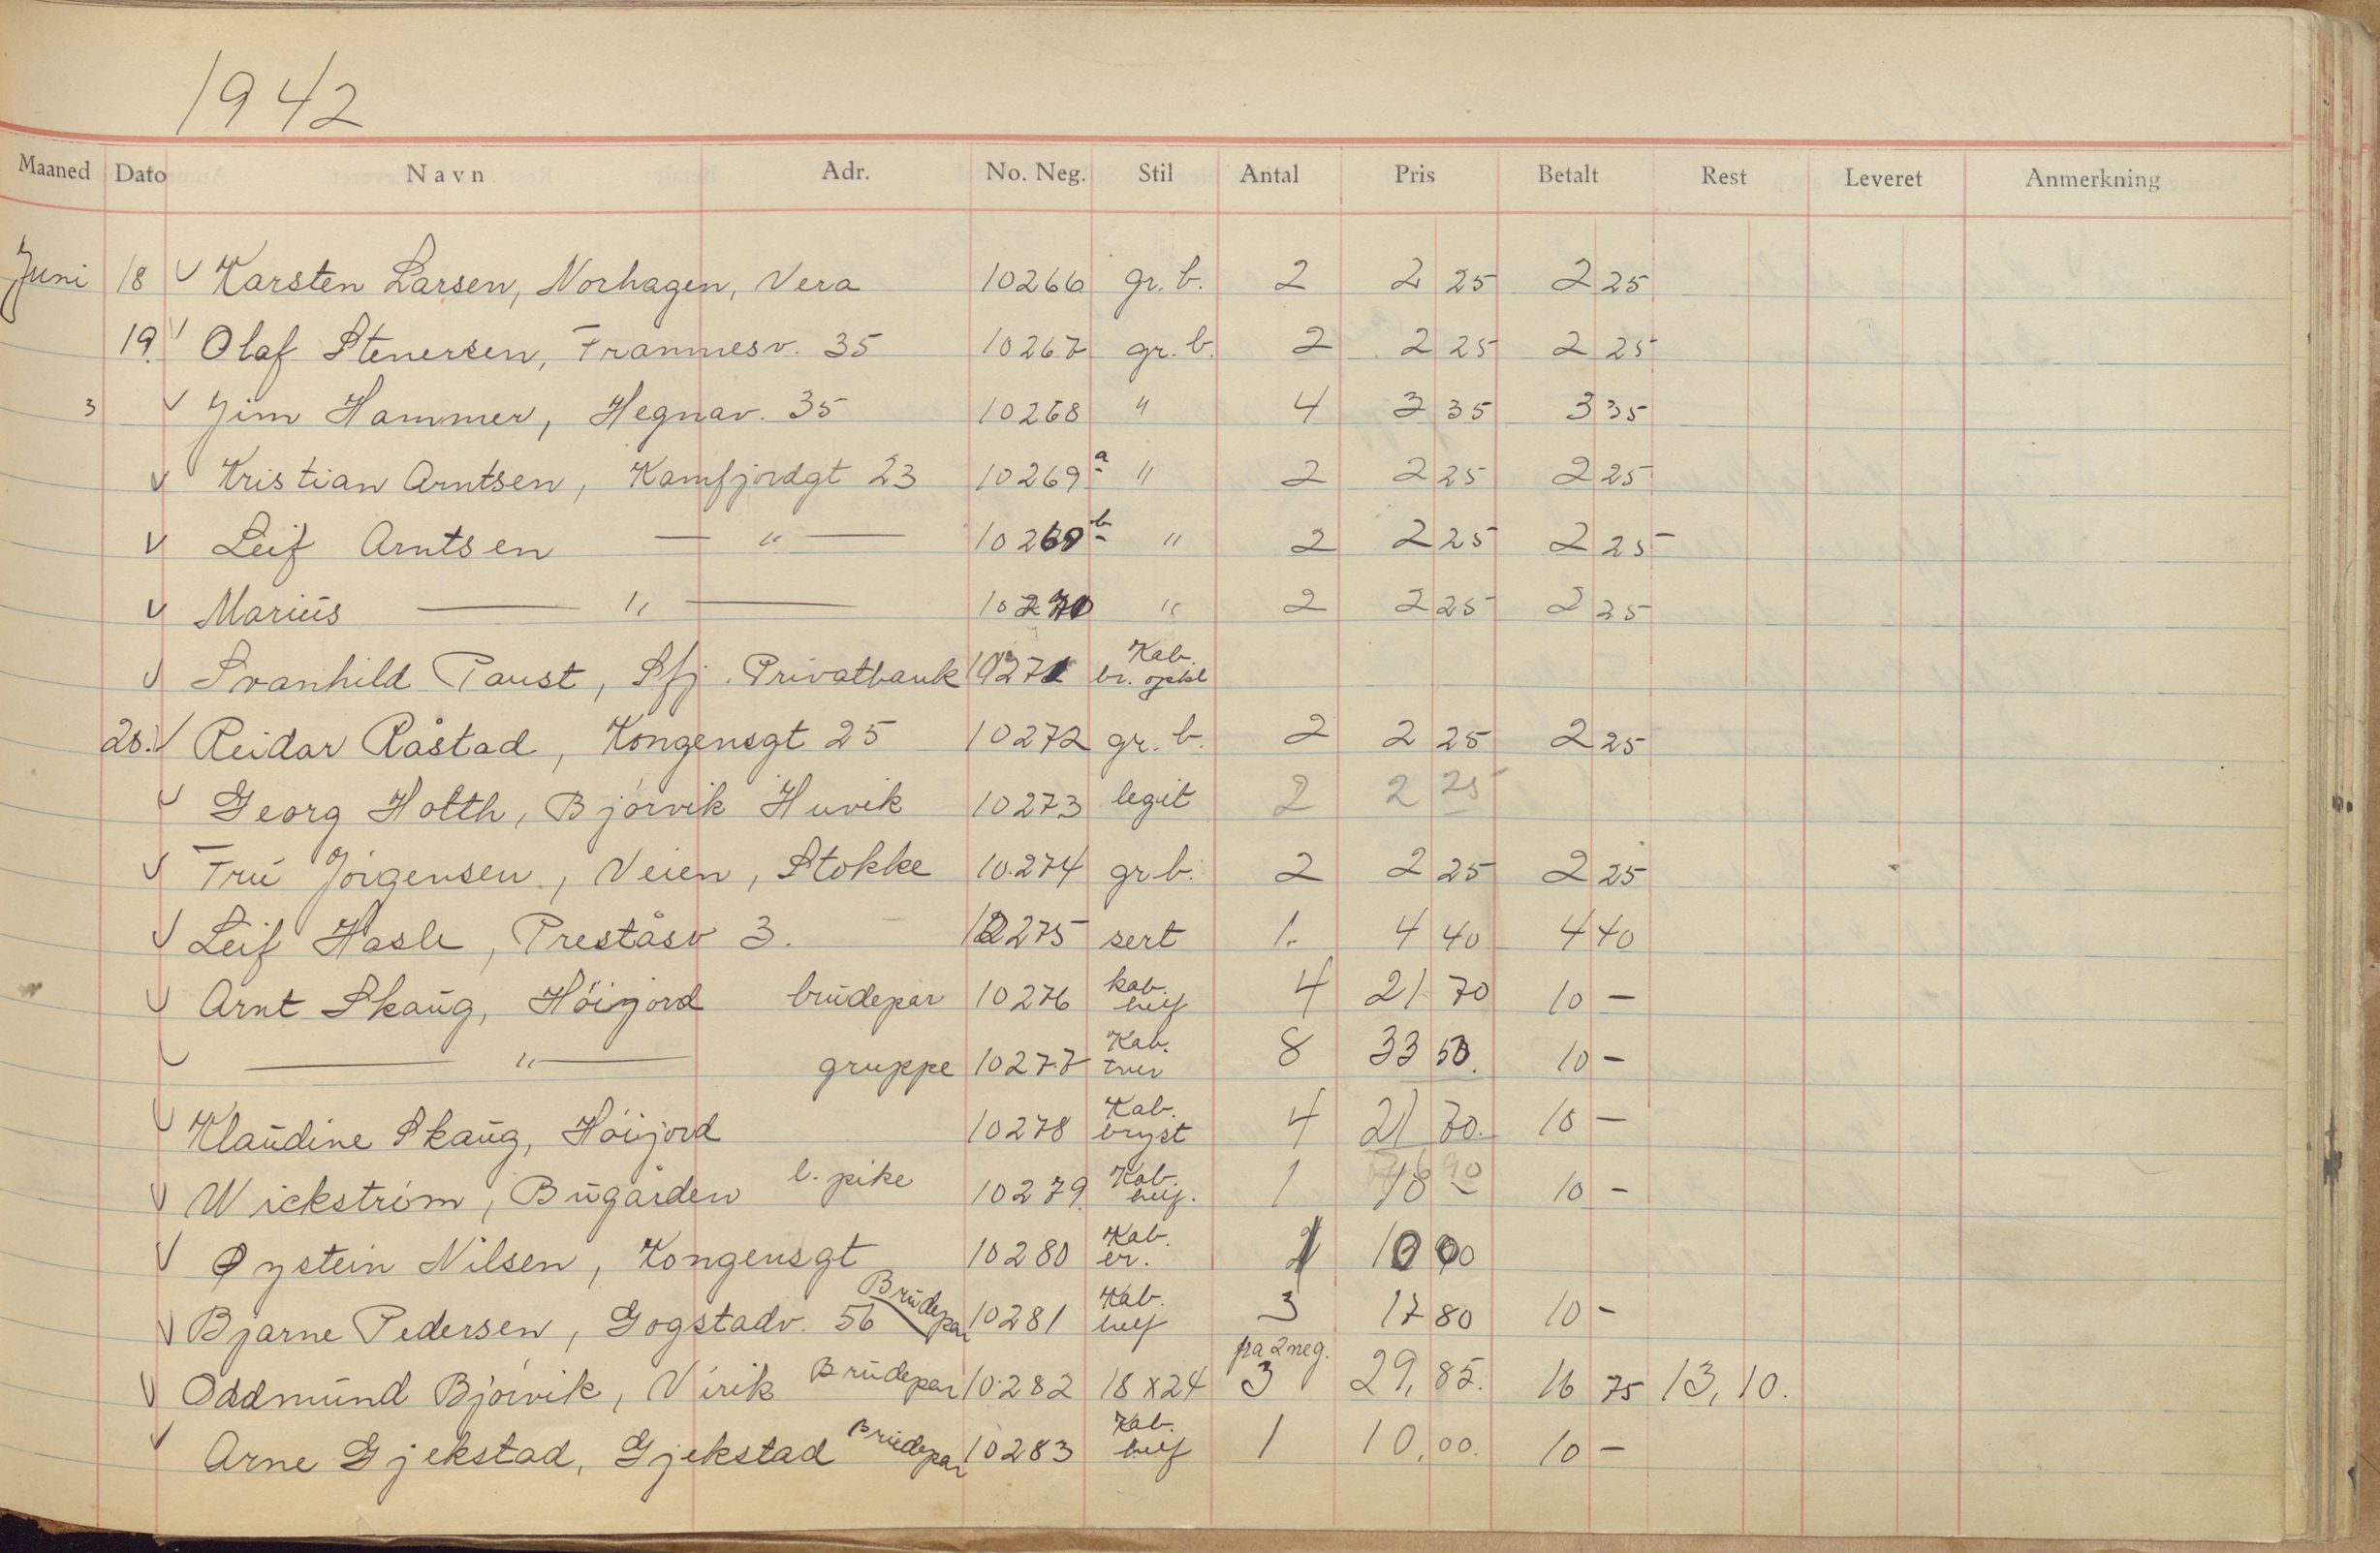 1942
Maaned Dato Navn Adr. No. Neg. Stil Antal Pris Betalt Rest Leveret Anmerkning
Juni 18 Karsten Larsen, Norhagen, Vera 10266 gr. b. 2 2 25 2 25
19. Olaf Stenersen, Framnesv. 35 10267 gr. b. 2 2 25 2 25
3 Jim Hammer, Hegnav. 35 10268 " 4 3 35 3 35
Kristian Arntsen, Kamfjordgt 23 10269 a " 2 2 25 2 25
Leif Arntsen — " — 10269 b " 2 2 25 2 25
Marius — " — 10270 " 2 2 25 2 25
Svanhild Paust, Sfj. Privatbank 10271 Kab. br.
20. Reidar Råstad, Kongensgt 25 10272 gr. b. 2 2 25 2 25
Georg Holth, Bjørvik Huvik 10273 legit 2 2 25
Fru Jörgensen, Veien, Stokke 10.274 gr b. 2 2 25 2 25
Leif Hasle, Preståsv 3. 10275 sert 1. 4 40 4 40
Arnt Skaug, Höijord brudepar 10276 kab. 4 21 70 10 —
— " — gruppe 10277 Kab. 8 33 50. 10 —
Klaudine Skaug, Höijord 10278 Kab. bryst 4 21 70. 10 —
Wickström, Bugården l. pike 10279. Kab. 1 10 —
Øystein Nilsen, Kongensgt 10280 Kab. er.
Bjarne Pedersen, Gogstadv. 56 Brudepar 10281 Kab. 3 17 80 10 —
Oddmund Bjørvik, Virik Brudepar 10282 18 x 24 fra 2 neg. 3 29, 85. 16 75 13, 10.
Arne Gjekstad, Gjekstad Brudepar 10283 Kab. 1 10,00. 10 —